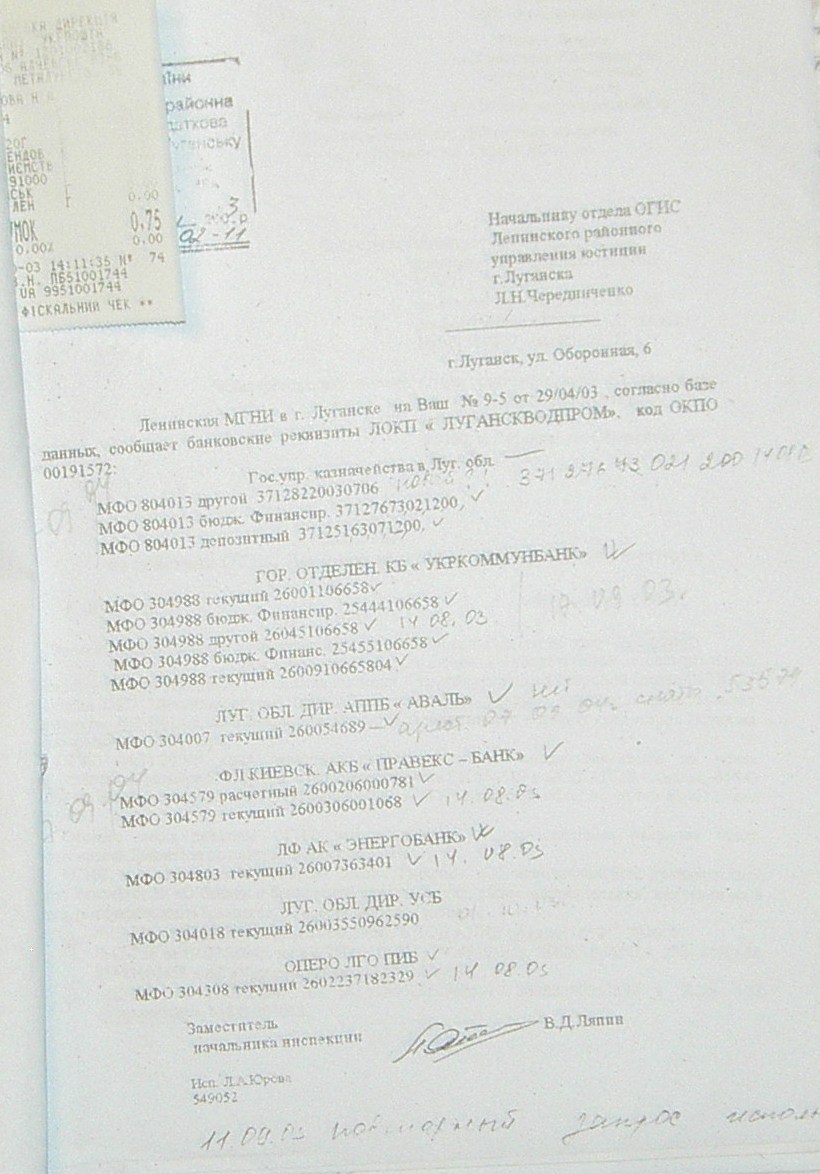 КА ДИРЕКЦІЯ
УКРПОШТА
91000
0.00
0,75
0.00%
0.00
-03 14:11:35 № 74
З.Н. ПБ51001744
UA 9951001744
ФІСКАЛЬНИЙ ЧЕК **
районна
02-11
Начальнику отдела ОГИС
Ленинского районного
управления юстиции
г.Луганска
Л.Н.Чередниченко
г.Луганск, ул. Оборонная, 6
Ленинская МГНИ в г. Луганске на Ваш № 9-5 от 29/04/03 , согласно базе
данных, сообщает банковские реквизиты ЛОКП « ЛУГАНСКВОДПРОМ», код ОКПО
00191572:
Гос.упр. казначейства в Луг. обл.
МФО 804013 другой 37128220030706
МФО 804013 бюдж. Финансир. 37127673021200,
МФО 804013 депозитный 37125163071200,
ГОР. ОТДЕЛЕН. КБ « УКРКОММУНБАНК»
МФО 304988 текущий 26001106658
МФО 304988 бюдж. Финансир. 25444106658 17.09.03.
МФО 304988 другой 26045106658 14 08. 03
МФО 304988 бюдж. Финанс. 25455106658
МФО 304988 текущий 2600910665804
ЛУГ. ОБЛ. ДИР. АППБ « АВАЛЬ»
МФО 304007 текущий 260054689
ФЛ КИЕВСК. АКБ « ПРАВЕКС – БАНК»
МФО 304579 расчетный 2600206000781
МФО 304579 текущий 2600306001068 14.08.03
ЛФ АК « ЭНЕРГОБАНК»
МФО 304803 текущий 26007363401 14. 08.03
ЛУГ. ОБЛ. ДИР. УСБ
МФО 304018 текущий 26003550962590
ОПЕРО ЛГО ПИБ
МФО 304308 текущий 2602237182329 14 08.03
Заместитель
начальника инспекции В.Д.Ляпин
Исп. Л.А.Юрова
549052
11.09.03 повторный запрос